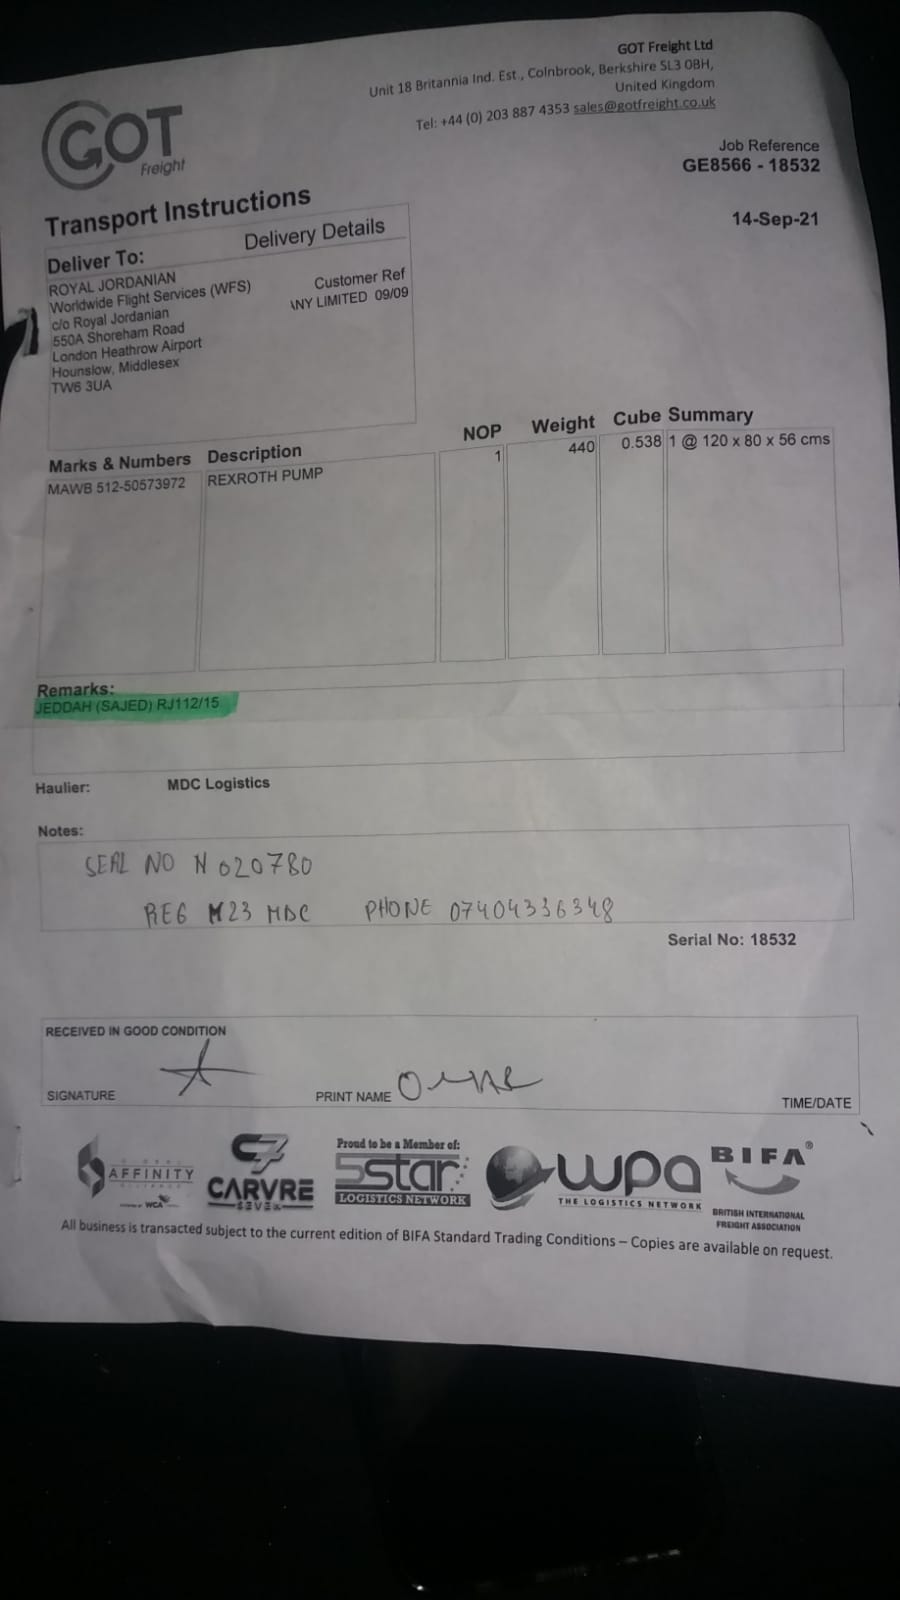 GOT Freight Ltd
Unit 18 Britannia Ind. Est., Colnbrook, Berkshire SL3 0BH,
United Kingdom
Tel: +44 (0) 203 887 4353 sales@gotfreight.co.uk
GOT
Freight
Job Reference
GE8566 - 18532
14-Sep-21
Transport Instructions
Delivery Details
Deliver To:
ROYAL JORDANIAN
Worldwide Flight Services (WFS)
c/o Royal Jordanian
550A Shoreham Road
London Heathrow Airport
Hounslow, Middlesex
TW6 3UA
Customer Ref
NY LIMITED 09/09
Marks & Numbers Description NOP Weight Cube Summary
MAWB 512-50573972 REXROTH PUMP 1 440 0.538 1 @ 120 x 80 x 56 cms
Remarks:
JEDDAH (SAJED) RJ112/15
Haulier: MDC Logistics
Notes:
SEAL NO N 020780
REG M23 MDC PHONE 07404336348
Serial No: 18532
RECEIVED IN GOOD CONDITION
SIGNATURE PRINT NAME TIME/DATE
AFFINITY
WCA
CARVRE
SEVEN
Proud to be a Member of:
5star
LOGISTICS NETWORK
wpa
THE LOGISTICS NETWORK
BIFA®
BRITISH INTERNATIONAL
FREIGHT ASSOCIATION
All business is transacted subject to the current edition of BIFA Standard Trading Conditions – Copies are available on request.